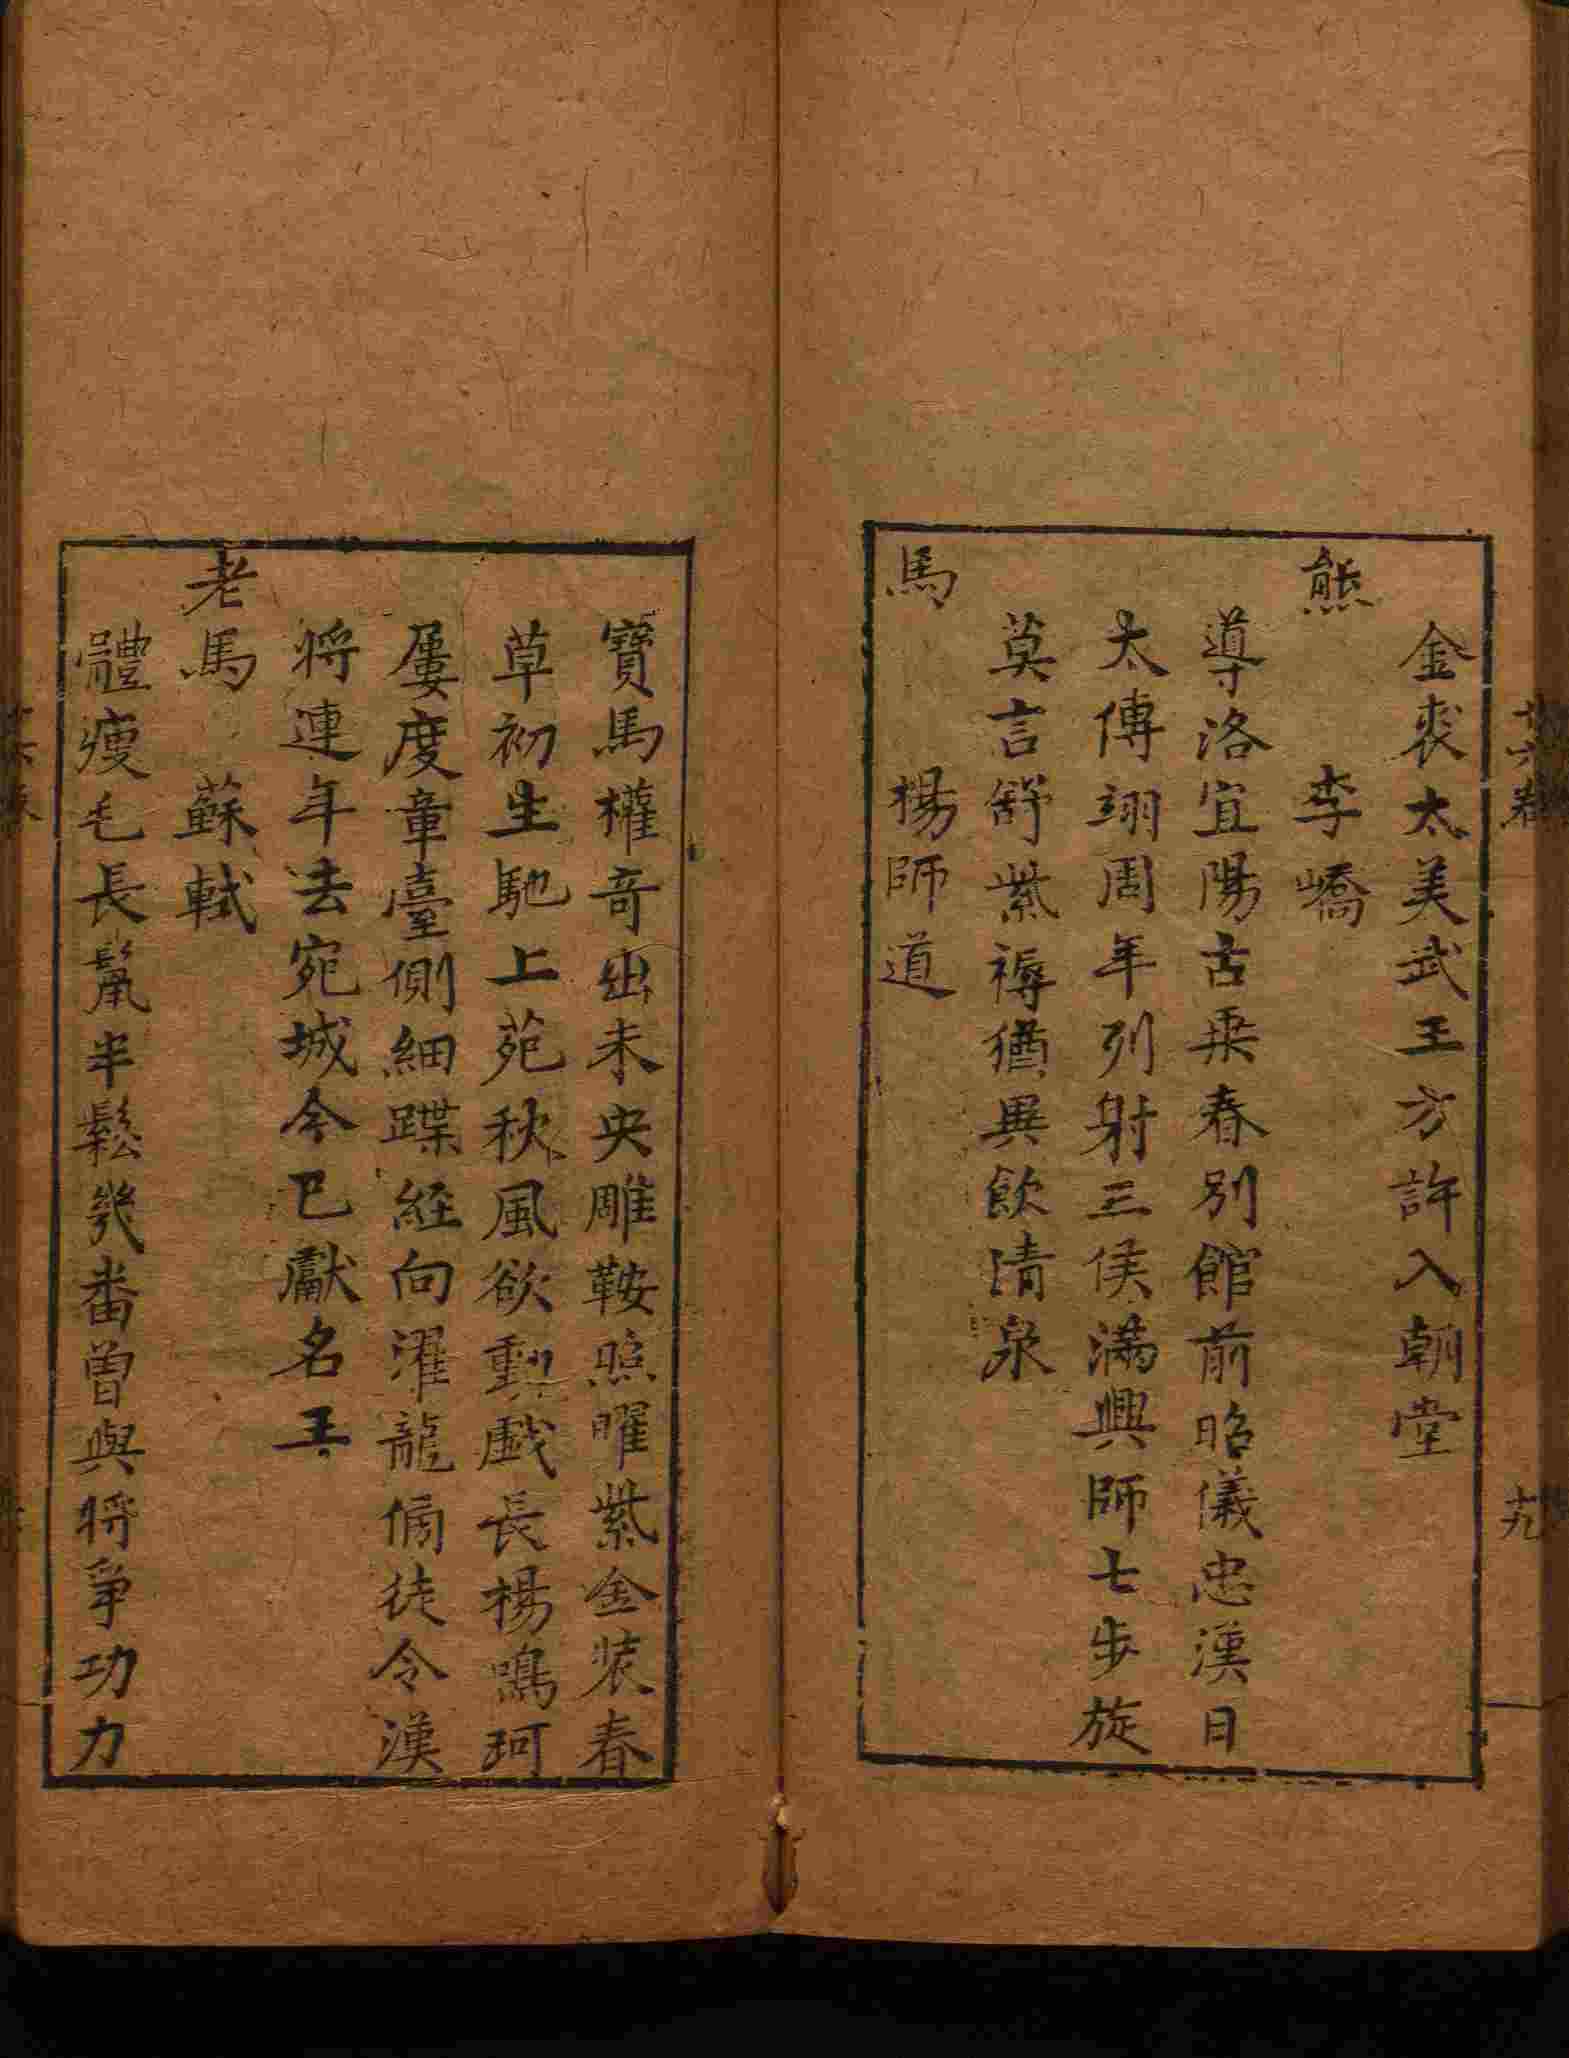 金裘太美武王方許入朝堂
熊　李嶠
導洛宜陽古乘春別館前昭儀忠漢日
太傅翊周年列射三侯滿興師七步旋
莫言舒紫褥猶異飲清泉
馬　楊師道
寶馬權奇出未央雕鞍照曜紫金裝春
草初生馳上苑秋風欲動戲長楊鳴珂
屢度章臺側細蹀經向濯龍傍徒令漢
將連年去宛城今已獻名王
老馬　蘇軾
體瘦毛長鬣半鬆幾番曽與將爭功力
十六卷
十九